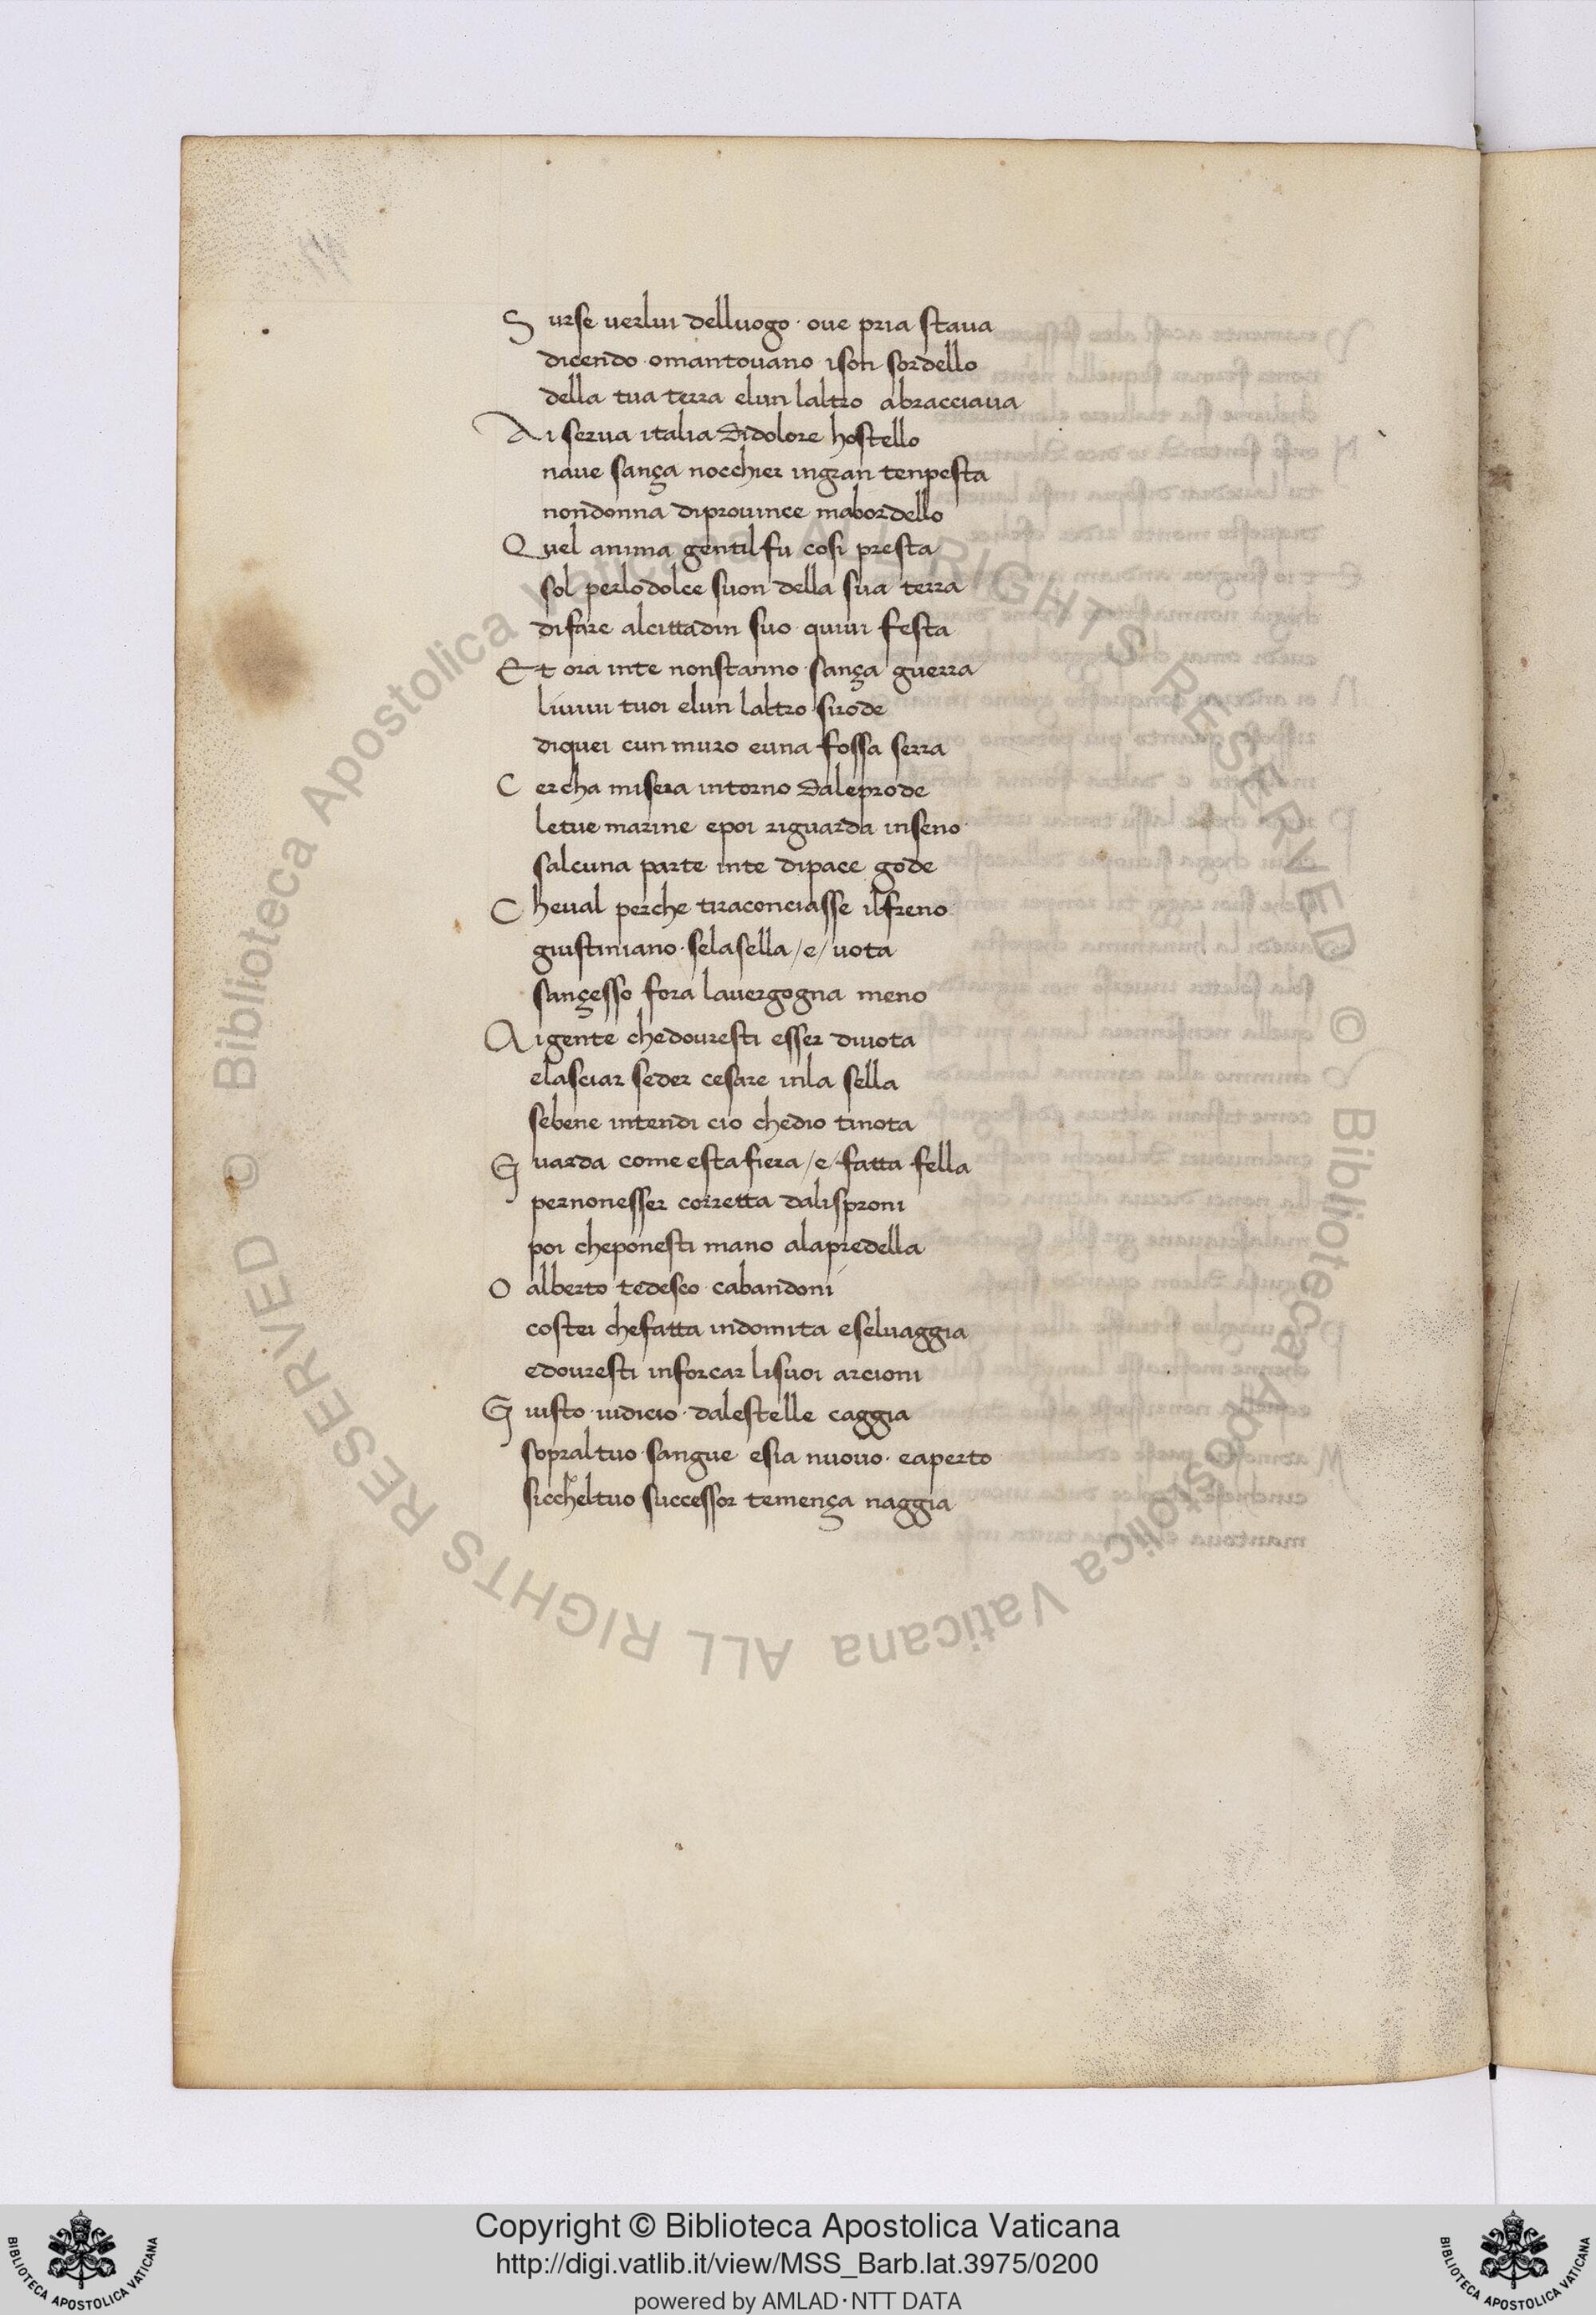 S urse uerlui delluogo · oue pria staua
dicendo · omantouano ison sordello
della tua terra elun laltro abracciaua
A i serua italia didolore hostello
naue sança nocchier ingran tenpesta
nondonna diprouince mabordello
Q uel anima gentil fu cosi presta
sol perlodolce suon della sua terra
difare alcittadin suo · quiui festa
E t ora inte nonstanno · sança guerra
liuiui tuoi elun laltro sirode
diquei cun muro euna fossa serra
C ercha misera intorno daleprode
letue marine epoi riguarda inseno
salcuna parte inte dipace gode
C heual perche tiraconciasse ilfreno
giustiniano · selasella /e/ uota
sançesso fora lauergogna meno
A i gente chedouresti esser diuota
elasciar seder cesare inla sella
sebene intendi cio chedio tinota
G uarda come estafiera /e/ fatta fella
pernonesser corretta dalisproni
poi cheponesti mano alapredella
O alberto tedesco · cabandoni
costei chefatta indomita eseluaggia
edouresti inforcar lisuoi arcioni
G iusto · iudicio · dalestelle caggia
sopraltuo sangue esia nuouo · eaperto
siccheltuo successor temença naggia
© Biblioteca Apostolica Vaticana ALL RIGHTS RESERVED © Biblioteca Apostolica Vaticana ALL RIGHTS RESERVED
Copyright © Biblioteca Apostolica Vaticana
http://digi.vatlib.it/view/MSS_Barb.lat.3975/0200
powered by AMLAD·NTT DATA
BIBLIOTECA APOSTOLICA VATICANA
BIBLIOTECA APOSTOLICA VATICANA